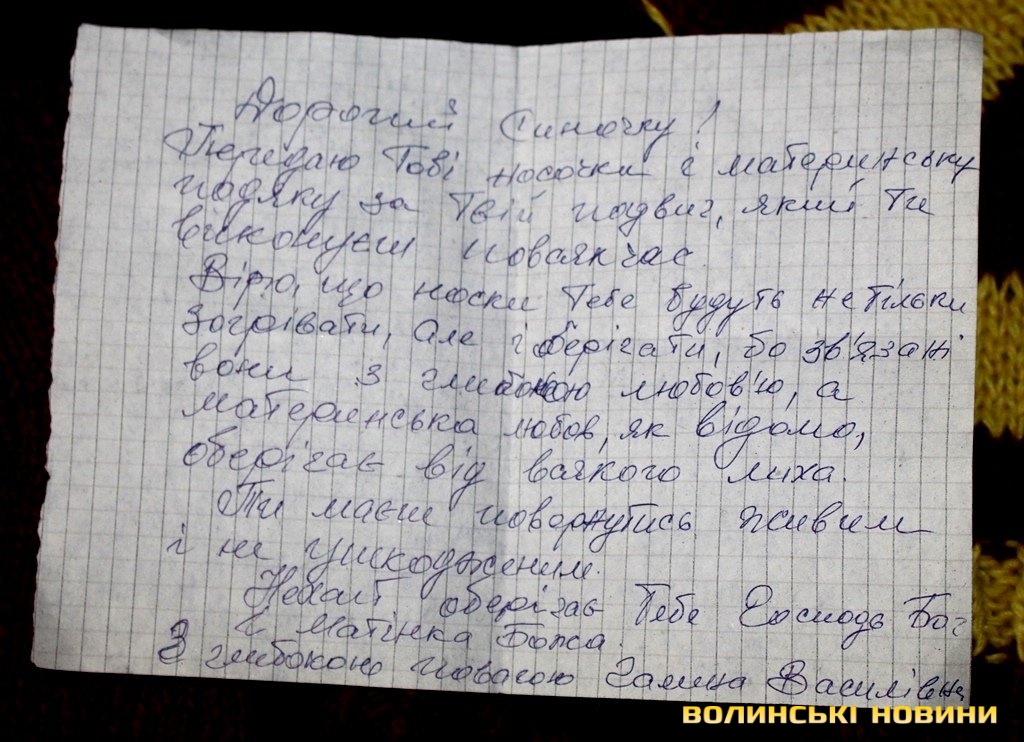 Дорогий Синочку!
Передаю Тобі носочки і материнську
подяку за Твій подвиг, який Ти
виконуєш повсякчас.
Вірю, що носки Тебе будуть не тільки
зогрівати, але і оберігати, бо зв'язані
вони з глибокою любов'ю, а
материнська любов, як відомо,
оберігає від всякого лиха.
Ти маєш повернутись живим
і не ушкодженим.
Нехай оберігає Тебе Господь Бог
і Матінка Божа.
З глибокою повагою Галина Василівна
ВОЛИНСЬКІ НОВИНИ